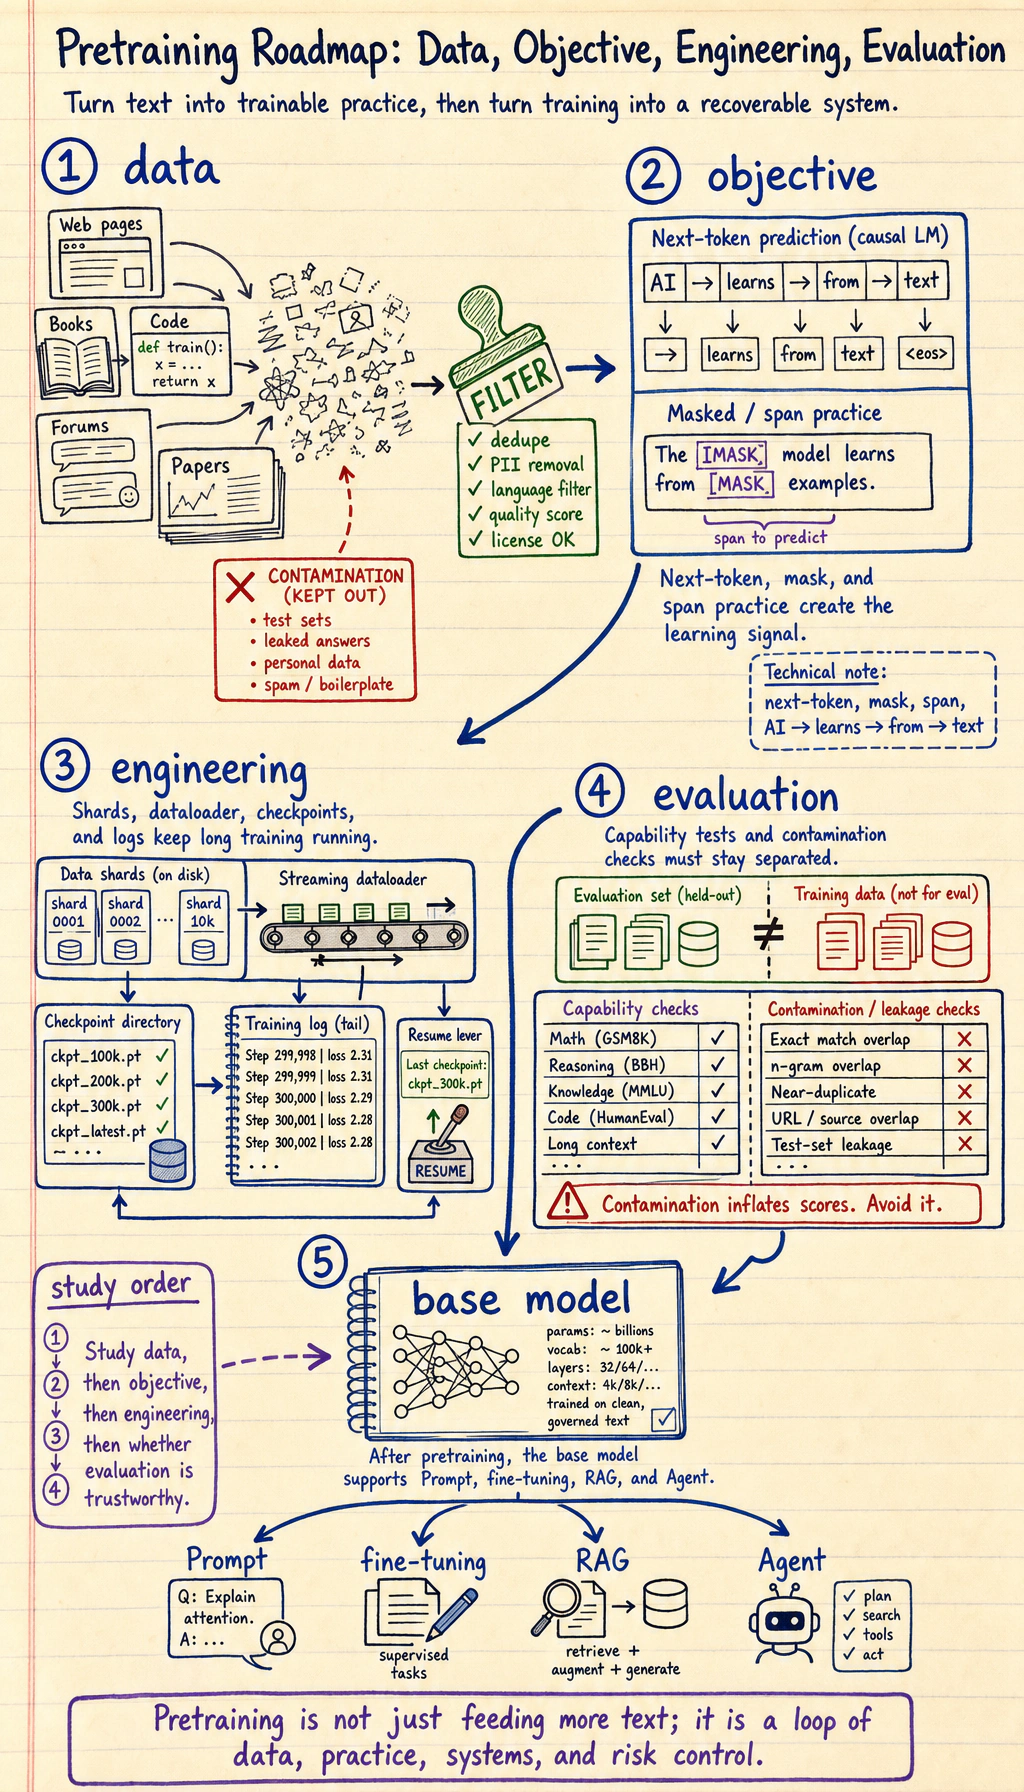 Pretraining Roadmap: Data, Objective, Engineering, Evaluation
Turn text into trainable practice, then turn training into a recoverable system.
1 data
Web pages
Books
Code
def train():
x = ...
return x
Forums
Papers
FILTER
✓ dedupe
✓ PII removal
✓ language filter
✓ quality score
✓ license OK
✗ CONTAMINATION
(KEPT OUT)
• test sets
• leaked answers
• personal data
• spam / boilerplate
2 objective
Next-token prediction (causal LM)
AI → learns → from → text
→ learns from text <eos>
Masked / span practice
The [MASK] model learns
from [MASK] examples.
span to predict
Next-token, mask, and
span practice create the
learning signal.
Technical note:
next-token, mask, span,
AI → learns → from → text
3 engineering
Shards, dataloader, checkpoints,
and logs keep long training running.
Data shards (on disk)
shard
0001
shard
0002
...
shard
10k
Streaming dataloader
Checkpoint directory
ckpt_100k.pt ✓
ckpt_200k.pt ✓
ckpt_300k.pt ✓
ckpt_latest.pt ✓
~ ...
Training log (tail)
Step 299,998 | loss 2.31
Step 299,999 | loss 2.31
Step 300,000 | loss 2.29
Step 300,001 | loss 2.28
Step 300,002 | loss 2.28
...
Resume lever
Last checkpoint:
ckpt_300k.pt
RESUME
4 evaluation
Capability tests and contamination
checks must stay separated.
Evaluation set (held-out)
≠
Training data (not for eval)
Capability checks
Math (GSM8K) ✓
Reasoning (BBH) ✓
Knowledge (MMLU) ✓
Code (HumanEval) ✓
Long context ✓
...
Contamination / leakage checks
Exact match overlap ✗
n-gram overlap ✗
Near-duplicate ✗
URL / source overlap ✗
Test-set leakage ✗
...
! Contamination inflates scores. Avoid it.
study order
1 Study data,
2 then objective,
then engineering,
3 then whether
evaluation is
4 trustworthy.
5
base model
params: ~ billions
vocab: ~ 100k+
layers: 32/64/...
context: 4k/8k/...
trained on clean,
governed text ✓
After pretraining, the base model
supports Prompt, fine-tuning, RAG, and Agent.
Prompt
Q: Explain
attention.
A: ...
fine-tuning
supervised
tasks
RAG
retrieve +
augment + generate
Agent
✓ plan
✓ search
✓ tools
✓ act
Pretraining is not just feeding more text; it is a loop of
data, practice, systems, and risk control.